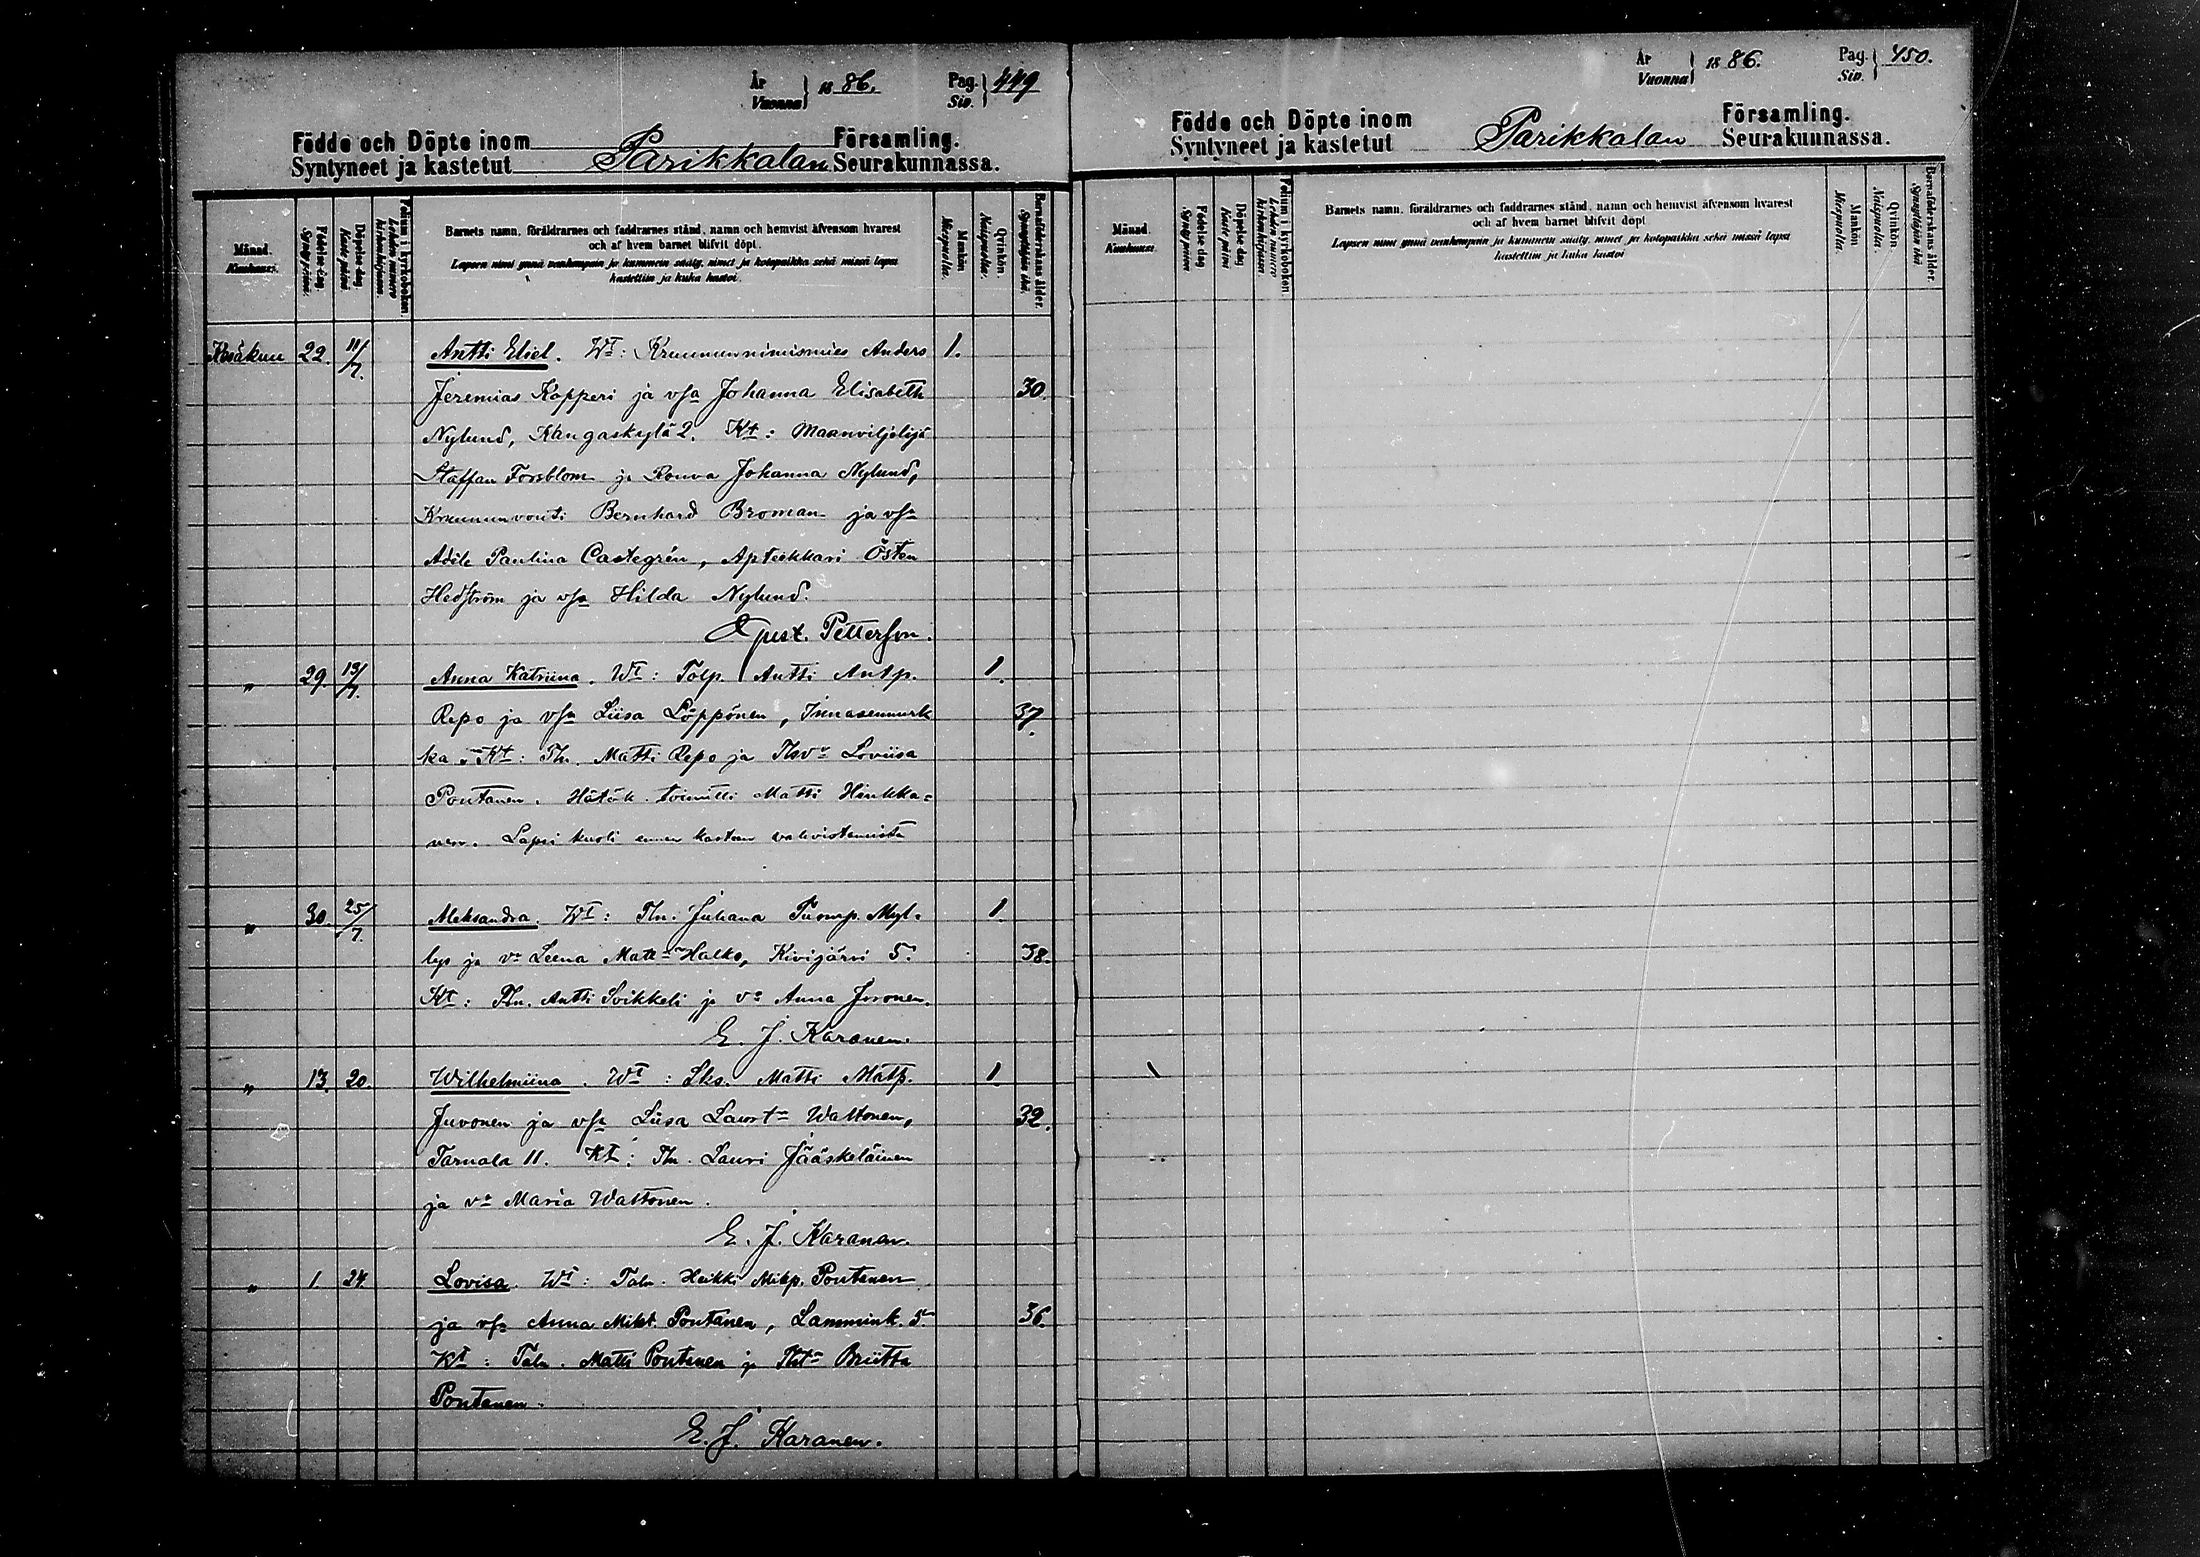 År
Vuonna } 1886. Pag.
Siv. } 449
Födde och Döpte inom Församling.
Syntyneet ja kastetut Parikkalan Seurakunnassa.
Månad. Kuukausi.
Födelse-dag. Syntymäpäivä.
Döpelse-dag. Kaste-päivä.
Folium i kyrkoboken. Lehden numero kirkonkirjassa.
Barnets namn, föräldrarnes och faddrarnes stånd, namn och hemvist äfvensom hvarest
och af hvem barnet blifvit döpt.
Lapsen nimi ynnä vanhempain ja kummein sääty, nimet ja kotopaikka sekä missä lapsi
kastettiin ja kuka kastoi.
Mankön. Miespuolia.
Qvinkön. Naispuolia.
Barnaföderskans ålder. Synnyttäjän ikä.
Kesäkuu 22. 11/7. Antti Eliel. Wt: Kruununnimismies Anders 1.
Jeremias Kopperi ja vsa Johanna Elisabeth 30.
Nylund, Kangaskylä 2. Kt: Maanviljelijä
Staffan Forsblom ja Rouva Johanna Nylund,
Kruununvouti Bernhard Broman ja vsa
Adéle Paulina Castegrén, Apteekkari Östen
Hedström ja vsa Hilda Nylund.
Petterson.
" 29. 13/7. Anna Katriina. Wt: Tolp. Antti Antp. 1.
Repo ja vsa Liisa Löppönen, Innasennurk 37.
ka. Kt: Thn. Matti Repo ja Thvr Loviisa
Pontanen. Hätäk. toimitti Matti Hinkka=
nen. Lapsi kuoli ennen kasteen vahvistamista
" 30. 25/7. Aleksandra. Wt: Thn. Juhana Tuomp. Myl= 1.
lys ja vo Leena Matt Halko, Kivijärvi 5. 38.
Kt: Thn. Antti Soikkeli ja vo Anna Jvronen.
E. J. Karanen.
" 13. 20. Wilhelmiina. Wt: Lks. Matti Matp. 1.
Juvonen ja vsa Liisa Laurt Wattonen, 32.
Tarnala 11. Kt: Thn. Lauri Jääskeläinen
ja vo Maria Wattonen.
E. J. Karanen.
" 1. 24. Lovisa. Wt: Taln. Heikki Mikp. Pontanen
ja vsa Anna Mikt. Pontanen, Lammink. 5. 36.
Kt: Taln. Matti Pontanen ja Briitta
Pontanen.
E. J. Karanen.
År
Vuonna } 1886. Pag.
Siv. } 450.
Födde och Döpte inom Församling.
Syntyneet ja kastetut Parikkalan Seurakunnassa.
Månad. Kuukausi.
Födelse-dag. Syntymäpäivä.
Döpelse-dag. Kaste-päivä.
Folium i kyrkoboken. Lehden numero kirkonkirjassa.
Barnets namn, föräldrarnes och faddrarnes stånd, namn och hemvist äfvensom hvarest
och af hvem barnet blifvit döpt.
Lapsen nimi ynnä vanhempain ja kummein sääty, nimet ja kotopaikka sekä missä lapsi
kastettiin ja kuka kastoi
Mankön. Miespuolia.
Qvinkön. Naispuolia.
Barnaföderskans ålder. Synnyttäjän ikä